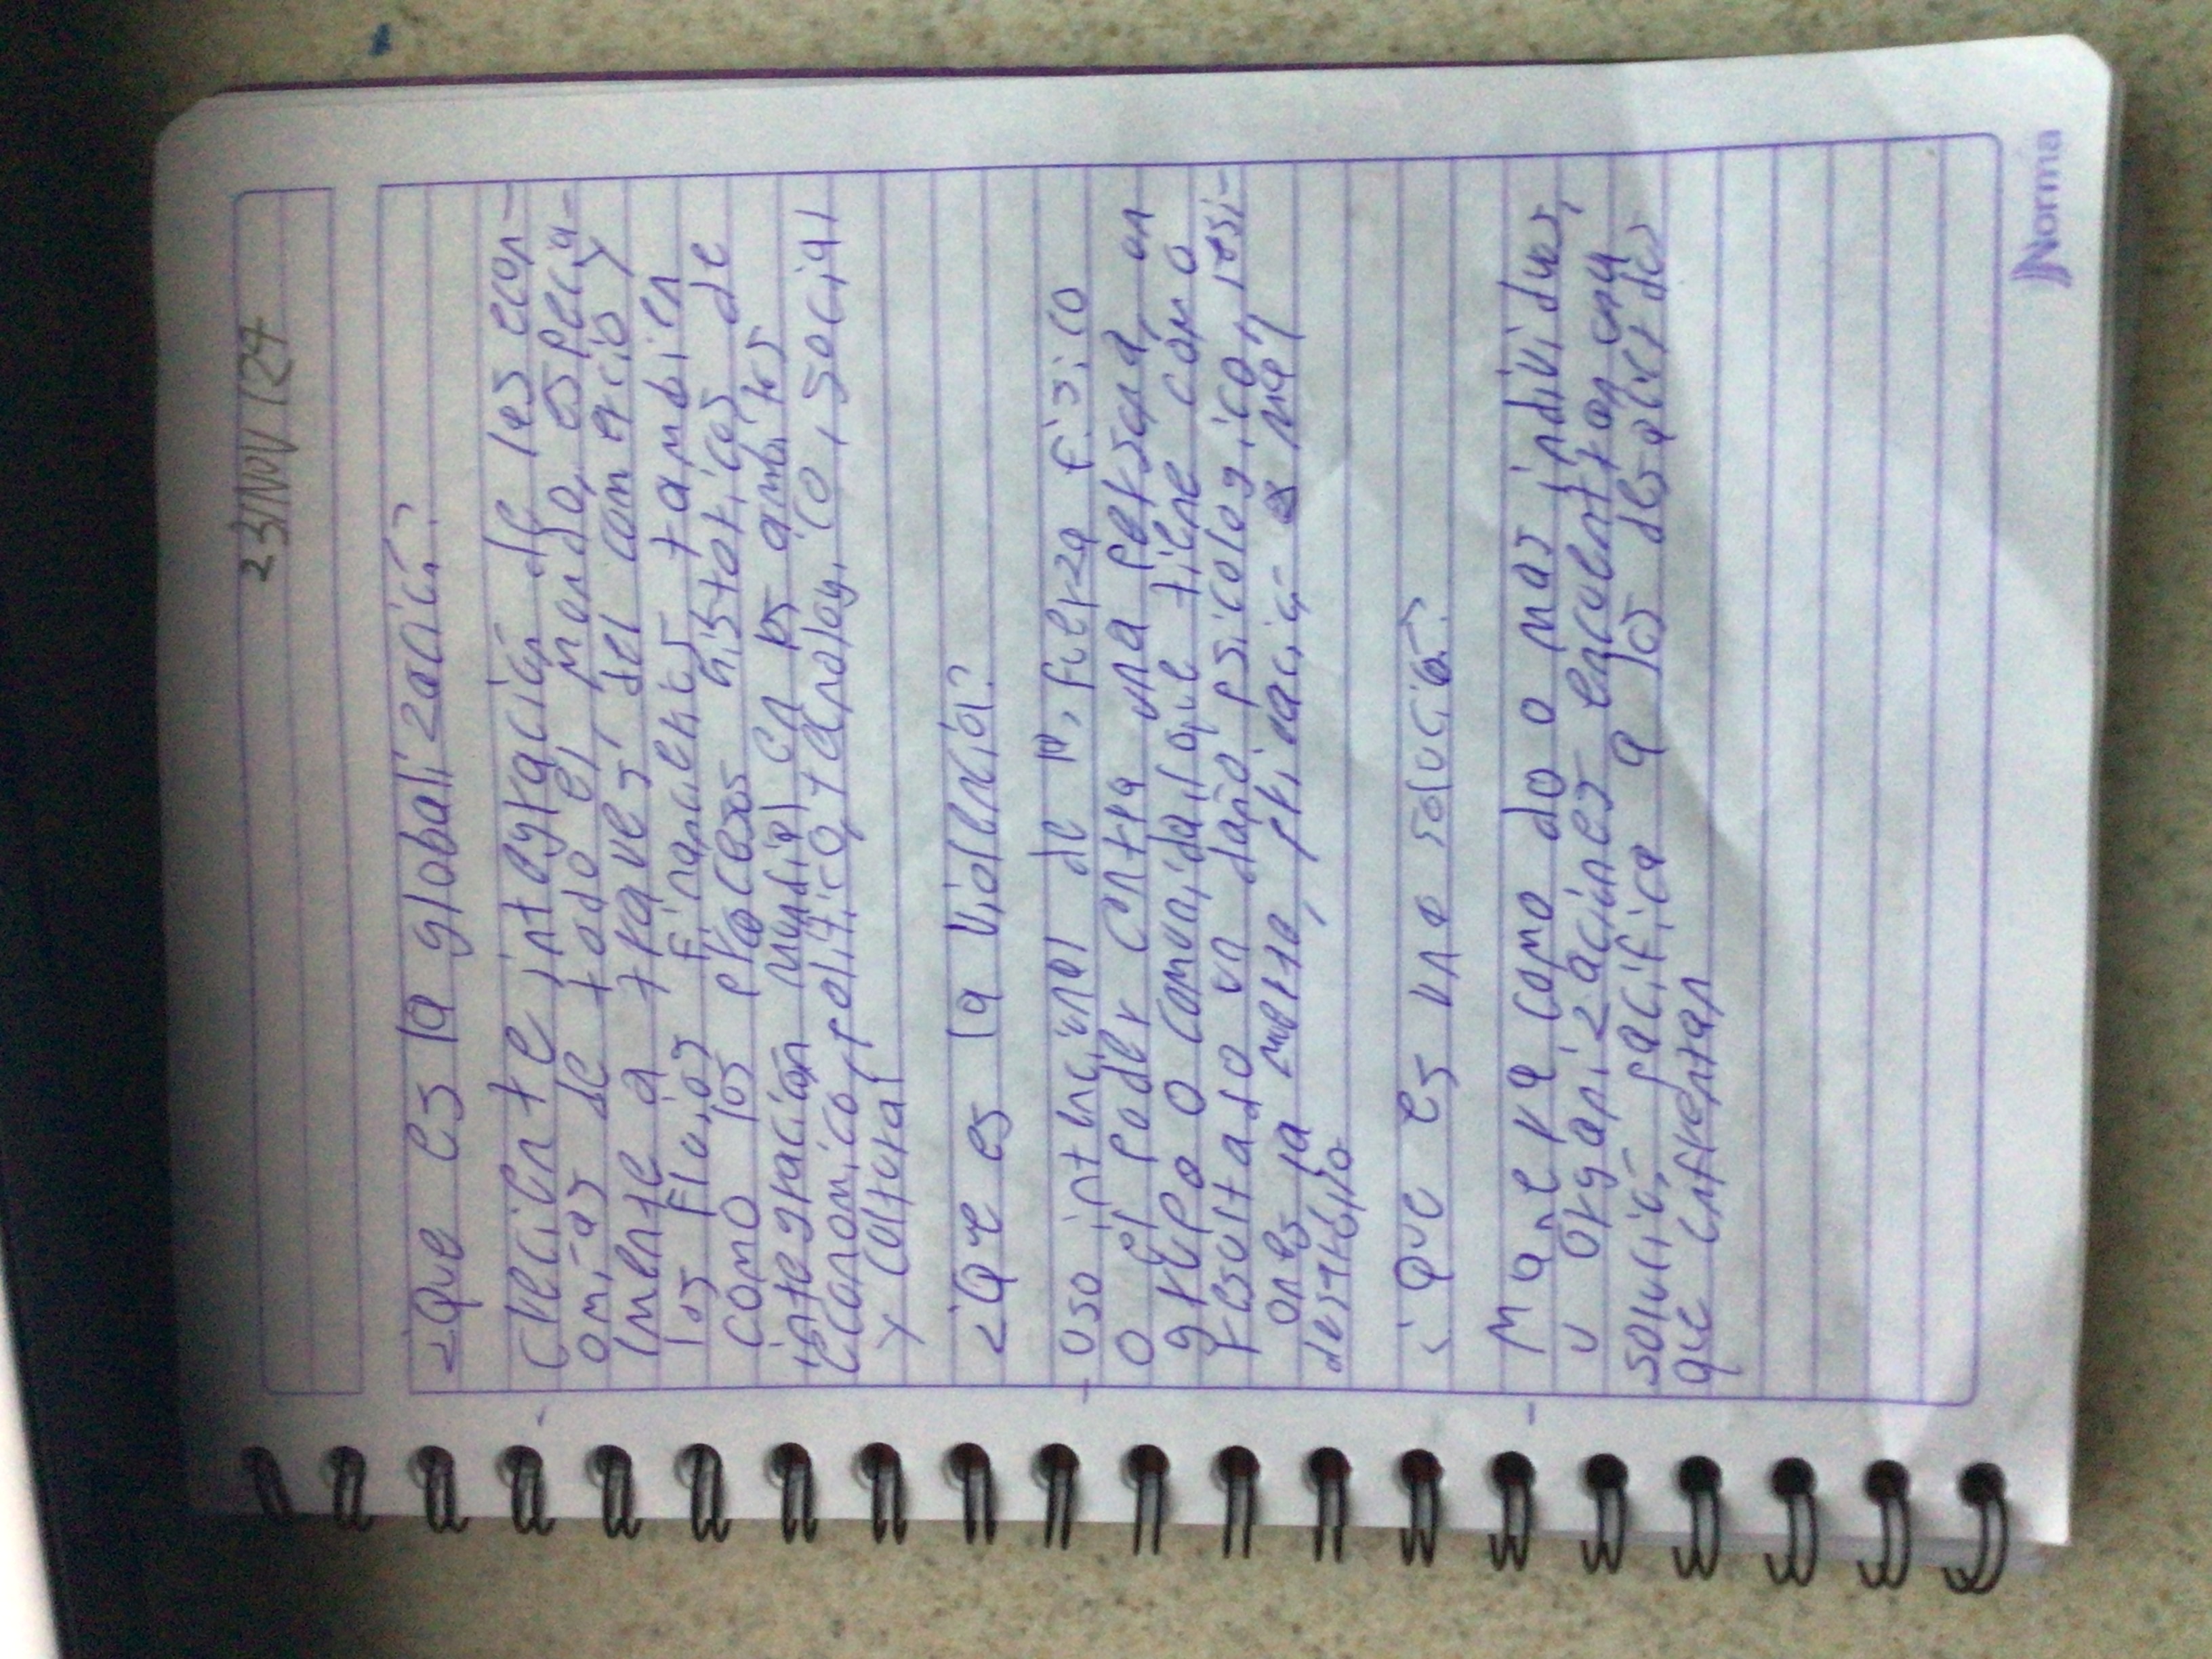 23/NOV/24
¿Que es la globalización?
Creciente integración de las econ-
omías de todo el mundo, especia-
lmente a traves, del comercio y
los flujos financieros también
como los procesos historicos de
integración mundial en los ámbitos
economico, político, tecnologico, social
y cultural
¿Que es la violencia?
Uso intencional de la fuerza fisico
o el poder contra una persona, un
grupo o comunidad que tiene como
resultado un daño psicologico, lesi-
ones la muerte, privación mal
desarrollo
¿Que es una solución?
Manera como do o mas individuos,
u organizaciones encuentran una
solución pacifica a los desafios
que enfrentan
Norma